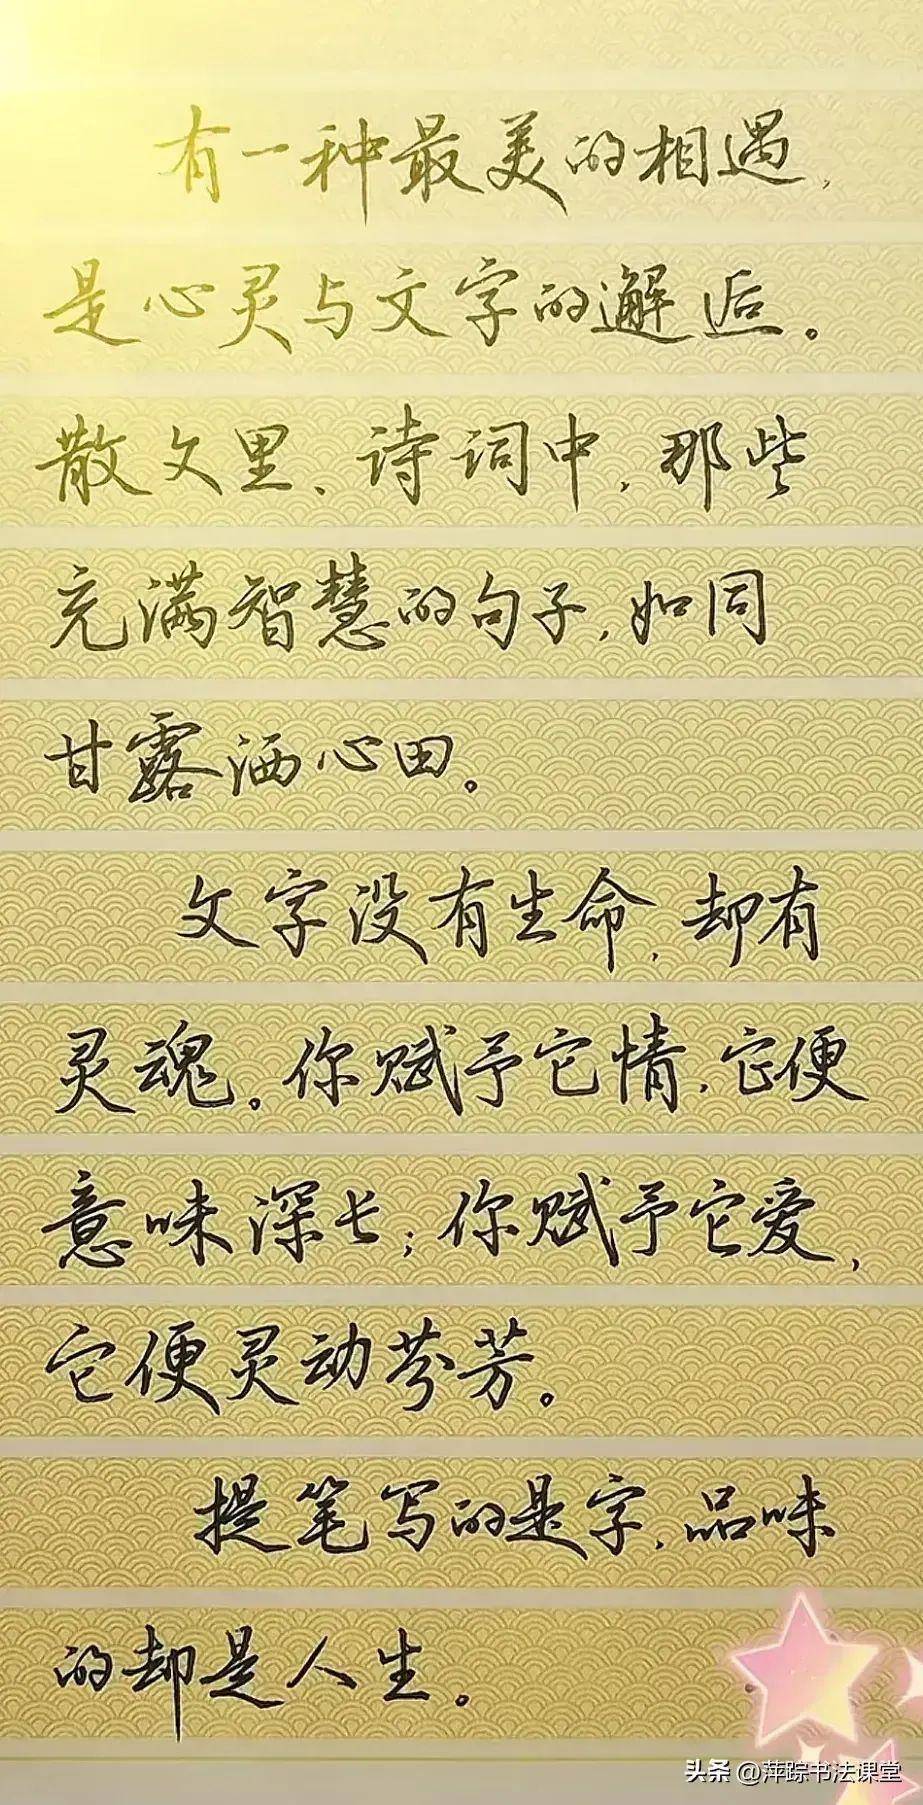 有一种最美的相遇，
是心灵与文字的邂逅。
散文里、诗词中，那些
充满智慧的句子，如同
甘露洒心田。
文字没有生命，却有
灵魂。你赋予它情，它便
意味深长；你赋予它爱，
它便灵动芬芳。
提笔写的是字，品味
的却是人生。
头条 @萍踪书法课堂